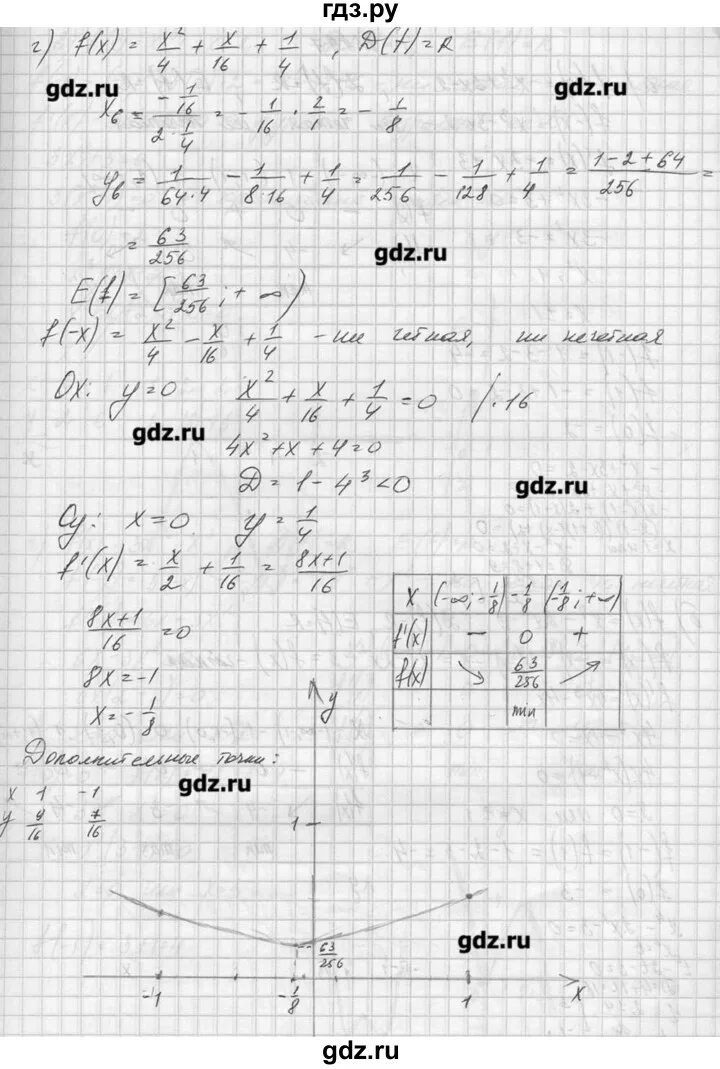 гдз.ру
г) f(x) = x²/4 + x/16 + 1/4 , D(f) = R
gdz.ru
gdz.ru
xв = (-1/16)/(2·1/4) = -1/16 · 2/1 = -1/8
yв = 1/(64·4) - 1/(8·16) + 1/4 = 1/256 - 1/128 + 1/4 = (1-2+64)/256 =
= 63/256
gdz.ru
E(f) = [63/256; +∞)
f(-x) = x²/4 - x/16 + 1/4 - ни четная, ни нечетная
Ox: y=0 x²/4 + x/16 + 1/4 = 0 /·16
gdz.ru
4x² + x + 4 = 0
D = 1 - 4³ < 0
gdz.ru
Oy: x=0 y = 1/4
f'(x) = x/2 + 1/16 = (8x+1)/16
(8x+1)/16 = 0
8x = -1
x = -1/8
x (-∞; -1/8) -1/8 (-1/8; +∞)
f'(x) - 0 +
f(x) ↘ 63/256 ↗
min
y
Дополнительные точки:
gdz.ru
x 1 -1
y 9/16 7/16
1
63/256
gdz.ru
-1 -1/8 1 x
gdz.ru